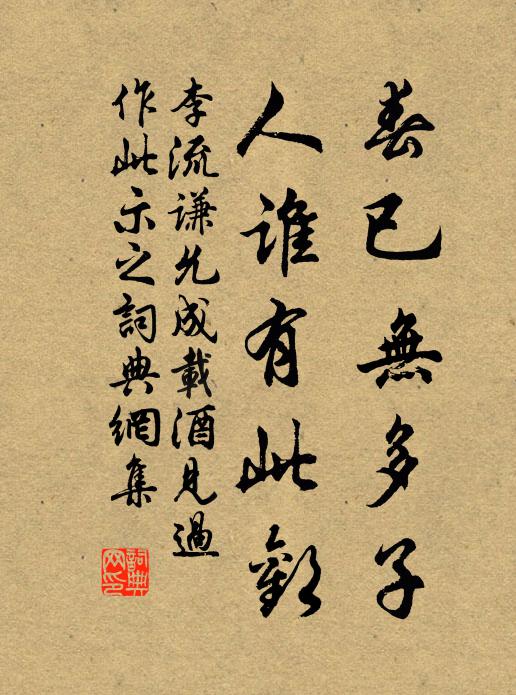 春已無多子
人誰有此歡
李流謙允成載酒見過
作此示之詞典網集
詞典網印